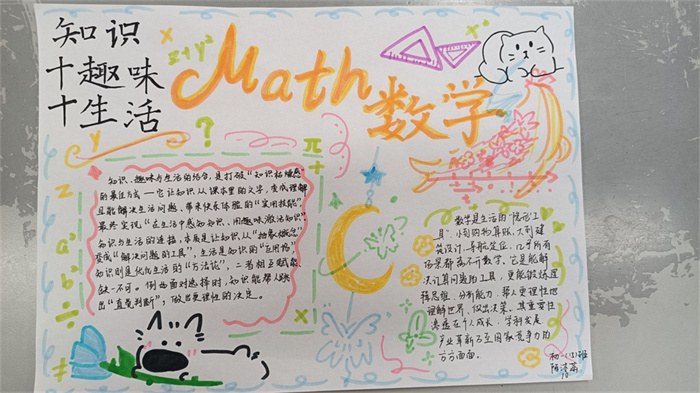 知识
十趣味
十生活
Math
数学
x
x+y²
y
?
π
z
a²
b²
÷
x
知识、趣味与生活的结合，是打破“知识枯燥感”
的最佳方式——它让知识从课本里的文字，变成理解
且能解决生活问题、带来快乐体验的“实用技能”。
最终实现“在生活中感知知识，用趣味激活知识”
知识与生活的连接，本质是让知识，从“抽象概念”
变成“解决问题的工具”，生活是知识的“应用场”
知识则是优化生活的“方法论”，二者相互赋能，
缺一不可。例如面对选择时，知识能帮人跳
出“直觉判断”，做出更理性的决定。
数学是生活的“隐形工
具”，小到购物算账，大到建
筑设计、导航定位，几乎所有
场景都离不开数学，它是能解
决计算问题的工具，更能锻炼逻
辑思维、分析能力，帮人更理性地
理解世界，做出决策。其重要性
渗透在个人成长、学科发展
产业革新乃至国家竞争力的
方方面面。
初一(2)班
10